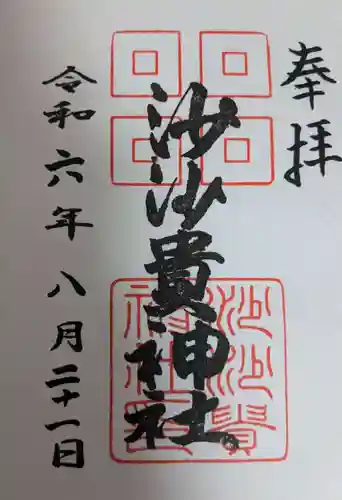 奉拝
沙沙貴神社
沙沙貴
神社印
令和六年八月二十一日